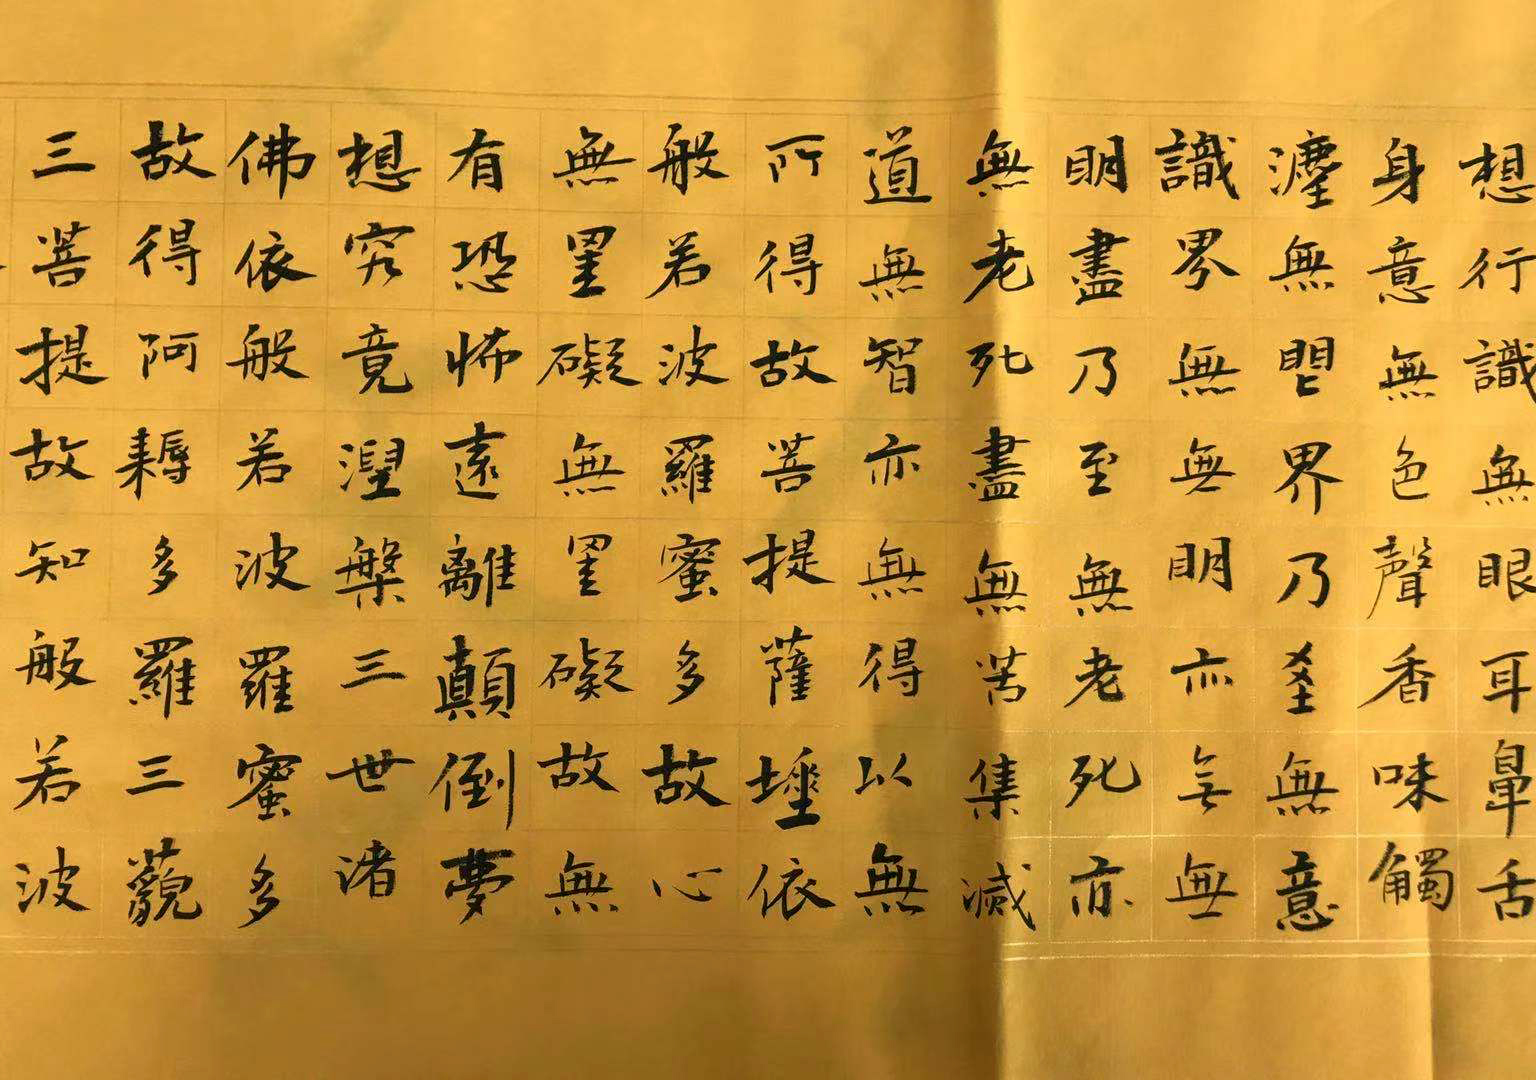 想行識無眼耳鼻舌
身意無色聲香味觸
灋無眼界乃至無意
識界無無明亦无無
明盡乃至無老死亦
無老死盡無苦集滅
道無智亦無得以無
所得故菩提薩埵依
般若波羅蜜多故心
無罣礙無罣礙故無
有恐怖遠離顛倒夢
想究竟涅槃三世諸
佛依般若波羅蜜多
故得阿耨多羅三藐
三菩提故知般若波